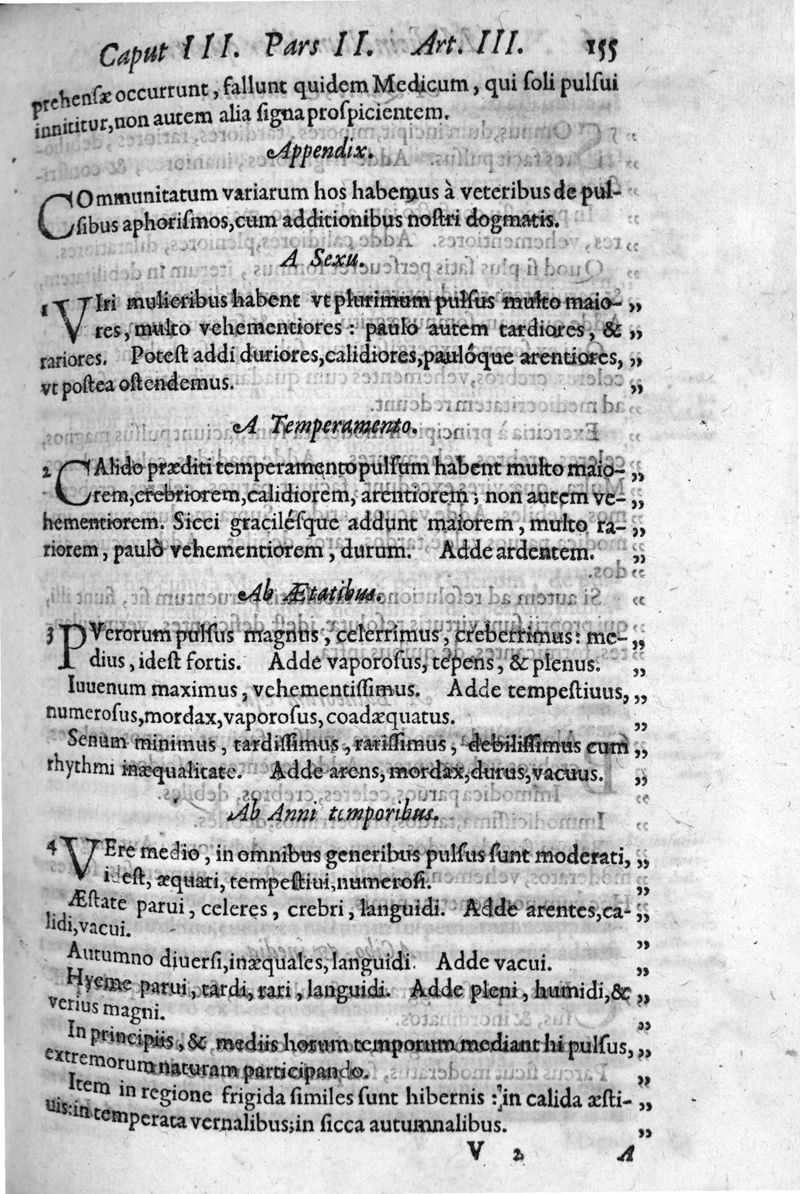 Caput III. Pars II. Art. III. 155
prehensæ occurrunt, fallunt quidem Medicum, qui soli pulsui
innititur, non autem alia signa prospicientem.
Appendix.
COmmunitatum variarum hos habemus à veteribus de pul-
sibus aphorismos, cum additionibus nostri dogmatis.
A Sexu.
1 VIri mulieribus habent vt plurimum pulsus multo maio- „
res, multo vehementiores : paulo autem tardiores, & „
rariores. Potest addi duriores, calidiores, paulóque arentiores, „
vt postea ostendemus. „
A Temperamento.
2 CAlido præditi temperamento pulsum habent multo maio- „
rem, crebriorem, calidiorem, arentiorem ; non autem ve- „
hementiorem. Sicci gracilésque addunt maiorem, multo ra- „
riorem, paulò vehementiorem, durum. Adde ardentem. „
Ab Ætatibus.
3 PVerorum pulsus magnus, celerrimus, creberrimus : me- „
dius, idest fortis. Adde vaporosus, tepens, & plenus. „
Iuuenum maximus, vehementissimus. Adde tempestiuus, „
numerosus, mordax, vaporosus, coadæquatus. „
Senum minimus, tardissimus, rarissimus, debilissimus cum „
rhythmi inæqualitate. Adde arens, mordax, durus, vacuus. „
Ab Anni temporibus.
4 VEre medio, in omnibus generibus pulsus sunt moderati, „
idest, æquati, tempestiui, numerosi. „
Æstate parui, celeres, crebri, languidi. Adde arentes, ca- „
lidi, vacui. „
Autumno diuersi, inæquales, languidi. Adde vacui. „
Hyeme parui, tardi, rari, languidi. Adde pleni, humidi, & „
verius magni. „
In principiis, & mediis horum temporum mediant hi pulsus, „
extremorum naturam participando. „
Item in regione frigida similes sunt hibernis : in calida æsti- „
uis : in temperata vernalibus; in sicca autumnalibus. „
V 2 A